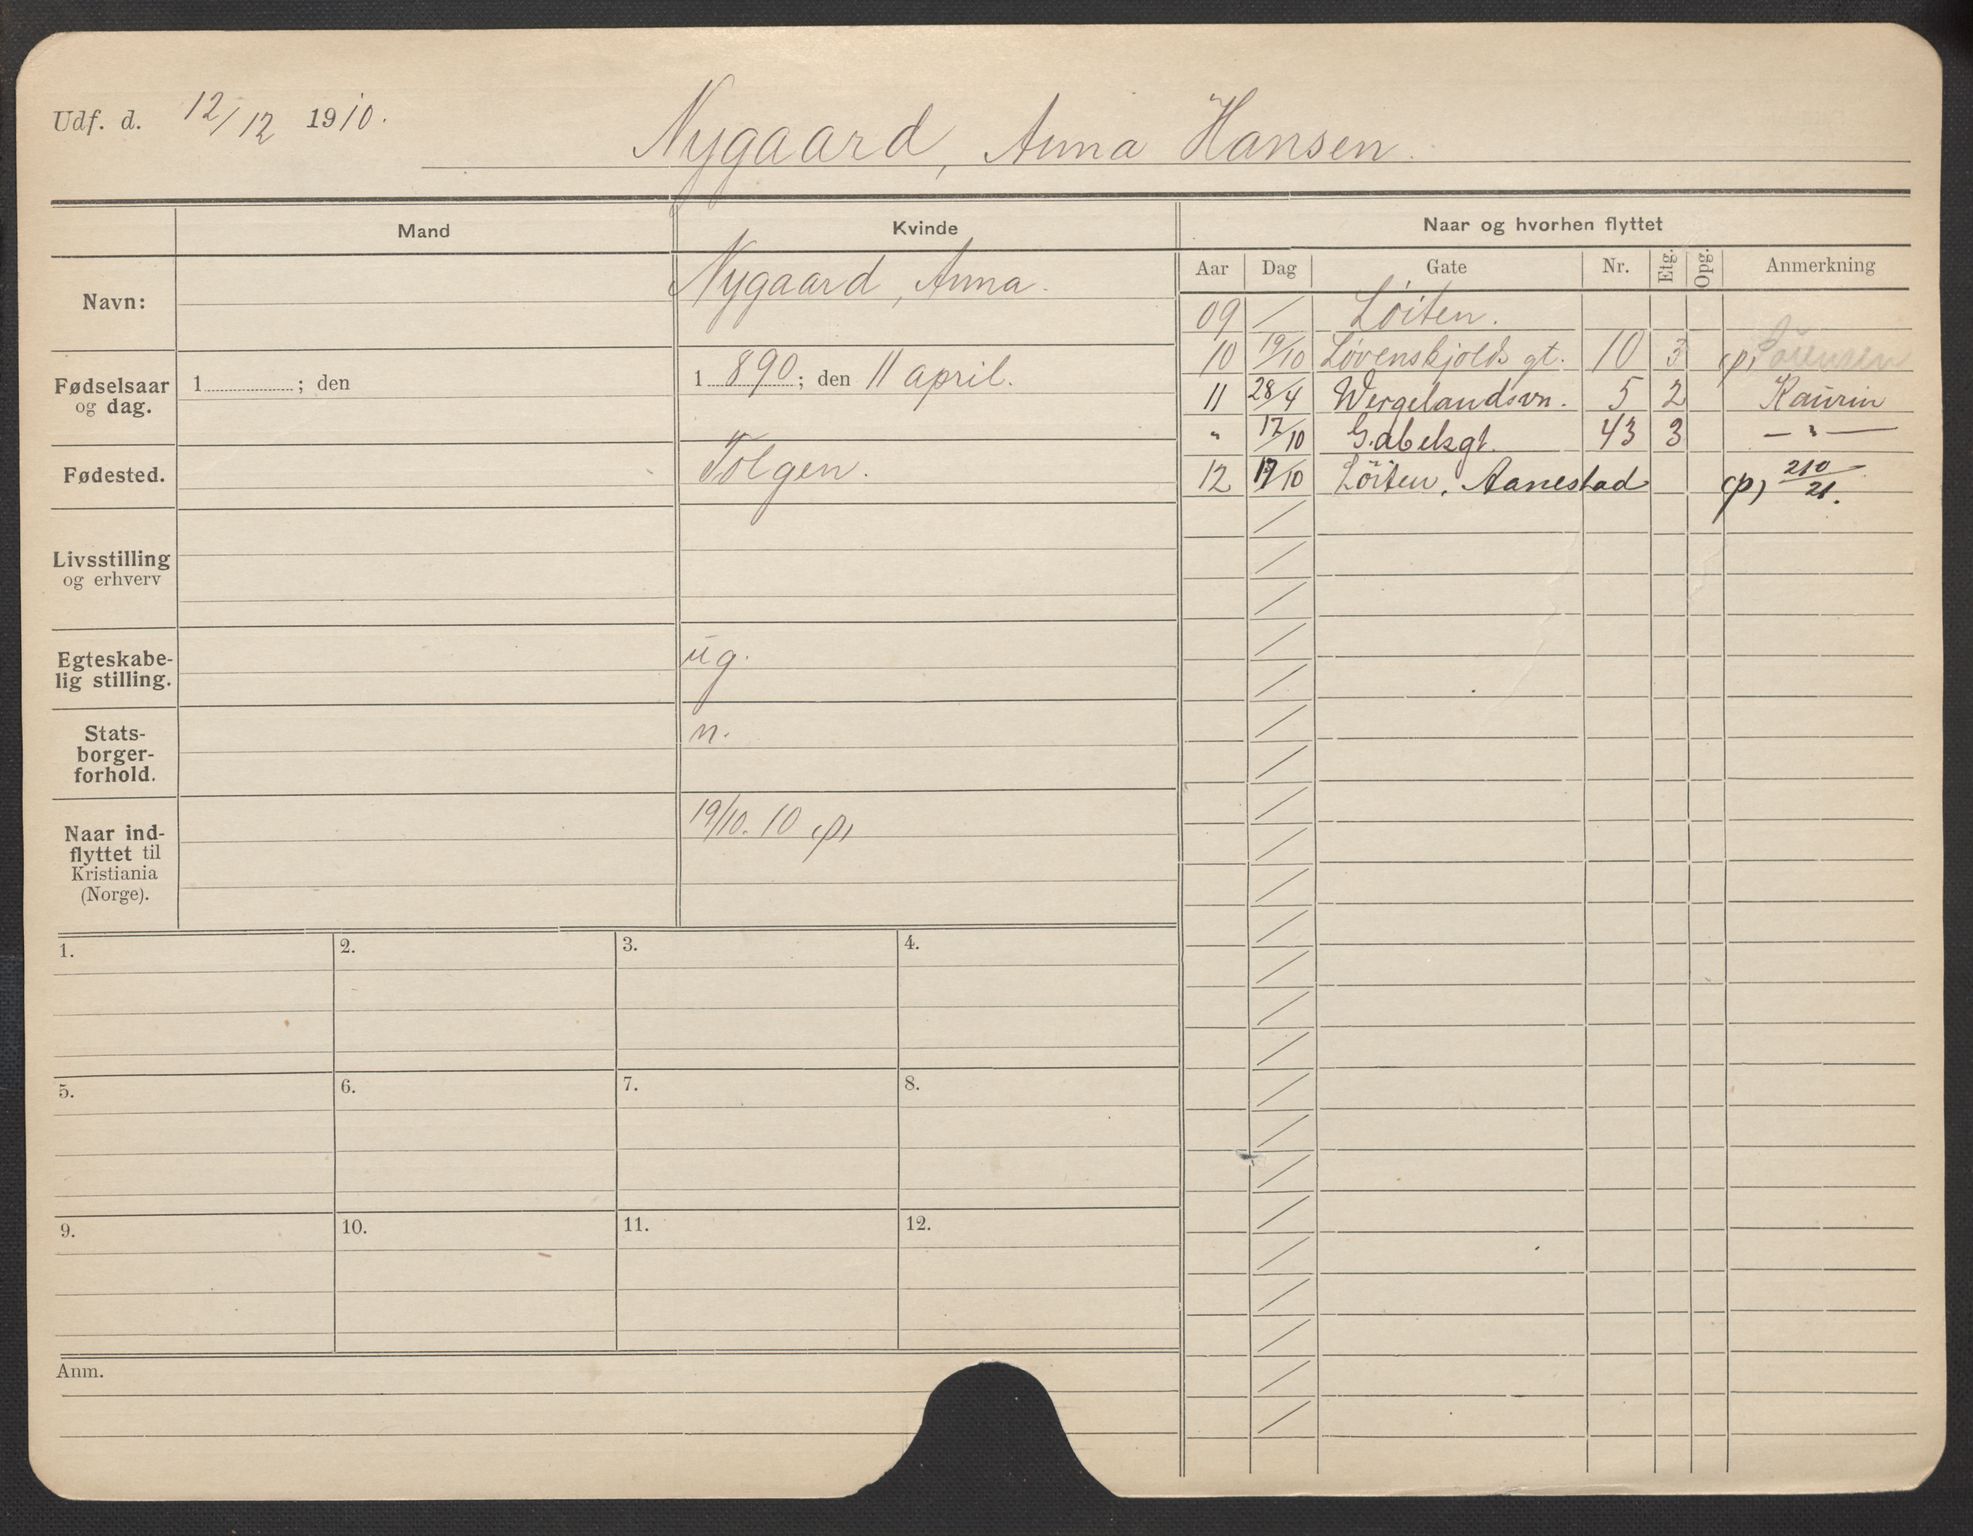 Udf. d. 12/12 1910.
Nygaard, Anna Hansen.
Mand Kvinde Naar og hvorhen flyttet
Aar Dag Gate Nr. Etg. Opg. Anmerkning
Navn: Nygaard, Anna.
Fødselsaar og dag. 1 ; den 1 890 ; den 11 april.
Fødested. Tolgen.
Livsstilling og erhverv
Egteskabe-
lig stilling. ug.
Stats-
borger-
forhold. n.
Naar ind-
flyttet til
Kristiania
(Norge). 19/10. 10 (p)
09 / Løiten.
10 19/10 Løvenskjolds gt. 10 3 (p) Sørensen
11 28/4 Wergelandsvn. 5 2 Kaurin
" 17/10 Gabelsgt. 43 3 — " —
12 17/10 Löiten, Aanestad (p) 210/21.
1. 2. 3. 4.
5. 6. 7. 8.
9. 10. 11. 12.
Anm.